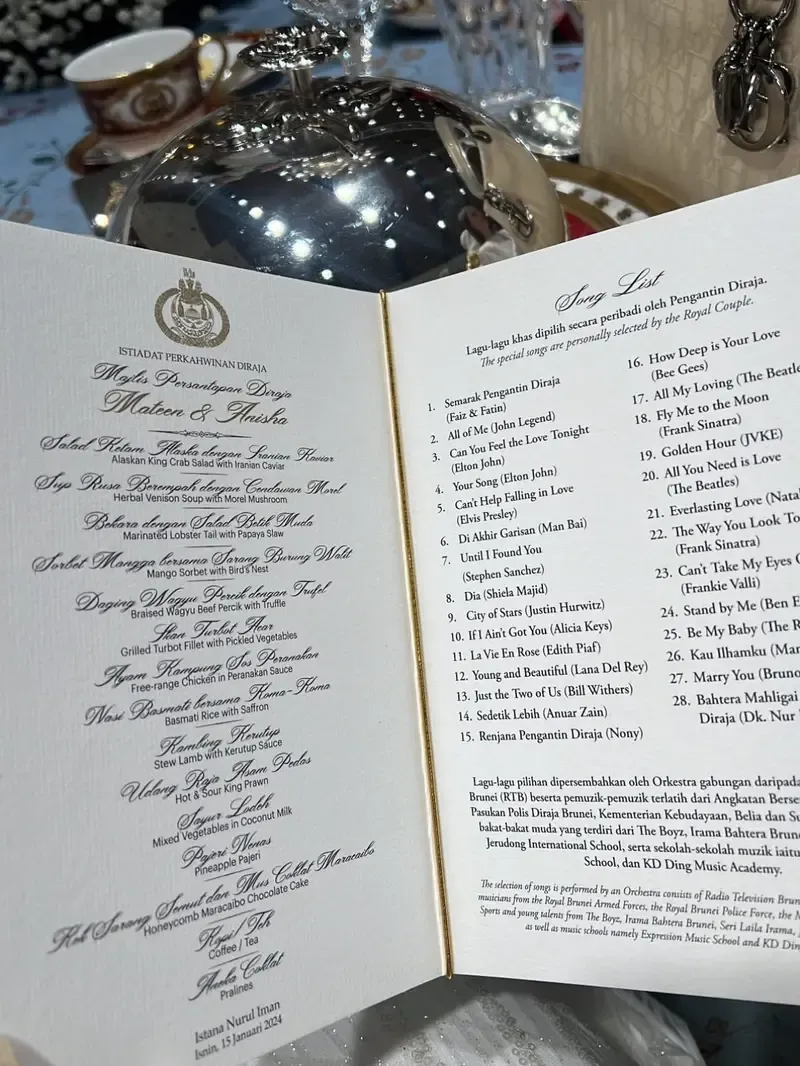 ISTIADAT PERKAHWINAN DIRAJA
Majlis Persantapan Diraja
Mateen & Anisha
Salad Ketam Alaska dengan Iranian Kaviar
Alaskan King Crab Salad with Iranian Caviar
Sup Rusa Berempah dengan Cendawan Morel
Herbal Venison Soup with Morel Mushroom
Bekara dengan Salad Betik Muda
Marinated Lobster Tail with Papaya Slaw
Sorbet Mangga bersama Sarang Burung Walit
Mango Sorbet with Bird's Nest
Daging Wagyu Percik dengan Trufel
Braised Wagyu Beef Percik with Truffle
Ikan Turbot Acar
Grilled Turbot Fillet with Pickled Vegetables
Ayam Kampung Sos Peranakan
Free-range Chicken in Peranakan Sauce
Nasi Basmati bersama Koma-Koma
Basmati Rice with Saffron
Kambing Kerutup
Stew Lamb with Kerutup Sauce
Udang Raja Asam Pedas
Hot & Sour King Prawn
Sayur Lodeh
Mixed Vegetables in Coconut Milk
Pajeri Nenas
Pineapple Pajeri
Kek Sarang Semut dan Mus Coklat Maracaibo
Honeycomb Maracaibo Chocolate Cake
Kopi / Teh
Coffee / Tea
Aneka Coklat
Pralines
Istana Nurul Iman
Isnin, 15 Januari 2024
Song List
Lagu-lagu khas dipilih secara peribadi oleh Pengantin Diraja.
The special songs are personally selected by the Royal Couple.
1. Semarak Pengantin Diraja
(Faiz & Fatin)
2. All of Me (John Legend)
3. Can You Feel the Love Tonight
(Elton John)
4. Your Song (Elton John)
5. Can't Help Falling in Love
(Elvis Presley)
6. Di Akhir Garisan (Man Bai)
7. Until I Found You
(Stephen Sanchez)
8. Dia (Shiela Majid)
9. City of Stars (Justin Hurwitz)
10. If I Ain't Got You (Alicia Keys)
11. La Vie En Rose (Edith Piaf)
12. Young and Beautiful (Lana Del Rey)
13. Just the Two of Us (Bill Withers)
14. Sedetik Lebih (Anuar Zain)
15. Renjana Pengantin Diraja (Nony)
16. How Deep is Your Love
(Bee Gees)
17. All My Loving (The Beatle
18. Fly Me to the Moon
(Frank Sinatra)
19. Golden Hour (JVKE)
20. All You Need is Love
(The Beatles)
21. Everlasting Love (Nata
22. The Way You Look To
(Frank Sinatra)
23. Can't Take My Eyes
(Frankie Valli)
24. Stand by Me (Ben E
25. Be My Baby (The R
26. Kau Ilhamku (Man
27. Marry You (Bruno
28. Bahtera Mahligai
Diraja (Dk. Nur
Lagu-lagu pilihan dipersembahkan oleh Orkestra gabungan daripada
Brunei (RTB) beserta pemuzik-pemuzik terlatih dari Angkatan Berse
Pasukan Polis Diraja Brunei, Kementerian Kebudayaan, Belia dan Su
bakat-bakat muda yang terdiri dari The Boyz, Irama Bahtera Brunei
Jerudong International School, serta sekolah-sekolah muzik iaitu
School, dan KD Ding Music Academy.
The selection of songs is performed by an Orchestra consists of Radio Television Brun
musicians from the Royal Brunei Armed Forces, the Royal Brunei Police Force, the M
Sports and young talents from The Boyz, Irama Bahtera Brunei, Seri Laila Irama,
as well as music schools namely Expression Music School and KD Din